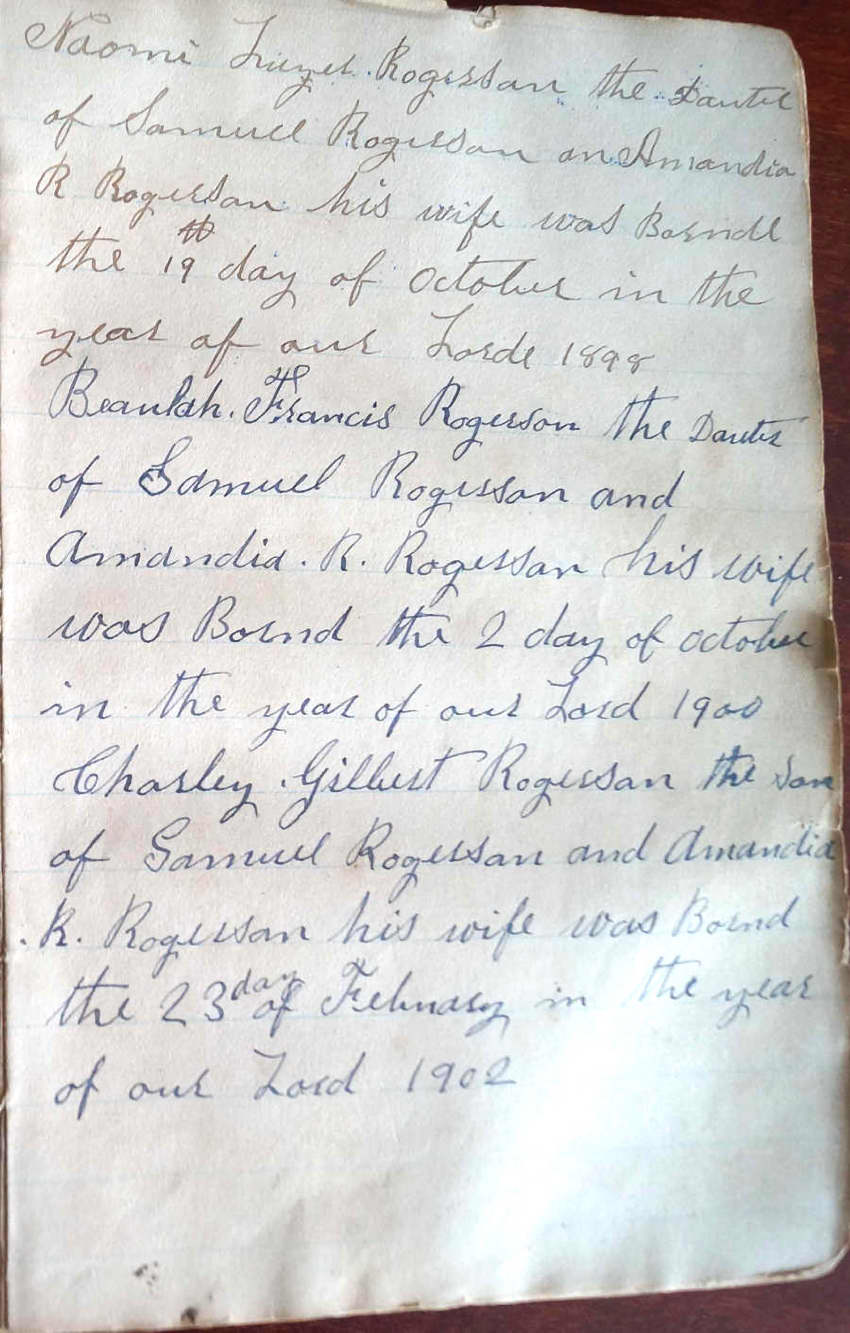 Naomi Luizer Rogerson the Dauter
of Samuel Rogerson an Amandia
R Rogerson his wife was Borndd
the 19th day of October in the
year of our Lorde 1898
Beaulah. Francis Rogerson the Dauter
of Samuel Rogerson and
Amandia. R. Rogerson his wife
was Bornd the 2 day of october
in the year of our Lord 1900
Charley. Gilbert Rogerson the son
of Samuel Rogerson and Amandia
. R. Rogerson his wife was Bornd
the 23 day of Februarey in the year
of our Lord 1902